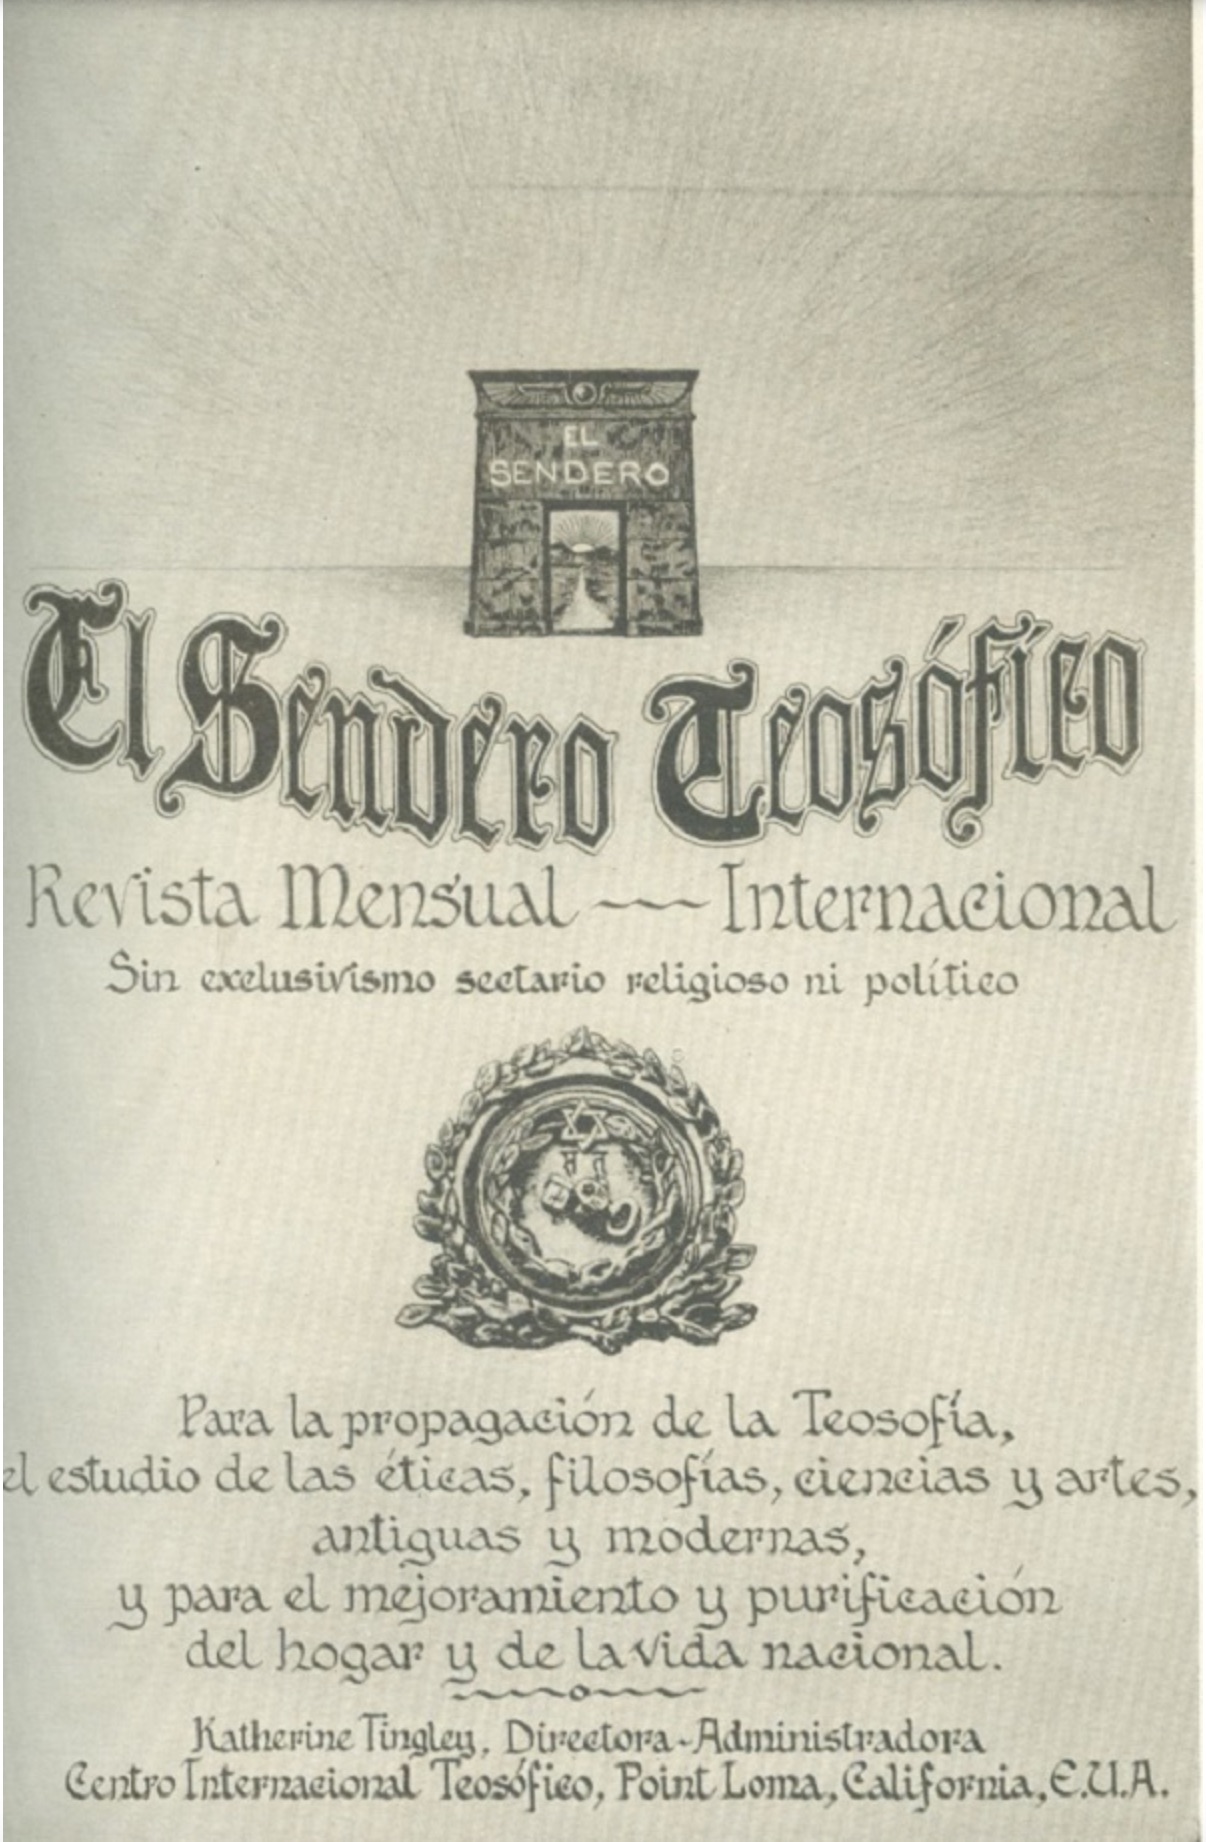 EL
SENDERO
El Sendero Teosófico
Revista Mensual — Internacional
Sin exclusivismo sectario religioso ni político
Para la propagación de la Teosofía,
el estudio de las éticas, filosofías, ciencias y artes,
antiguas y modernas,
y para el mejoramiento y purificación
del hogar y de la vida nacional.
Katherine Tingley, Directora-Administradora
Centro Internacional Teosófico, Point Loma, California, E.U.A.